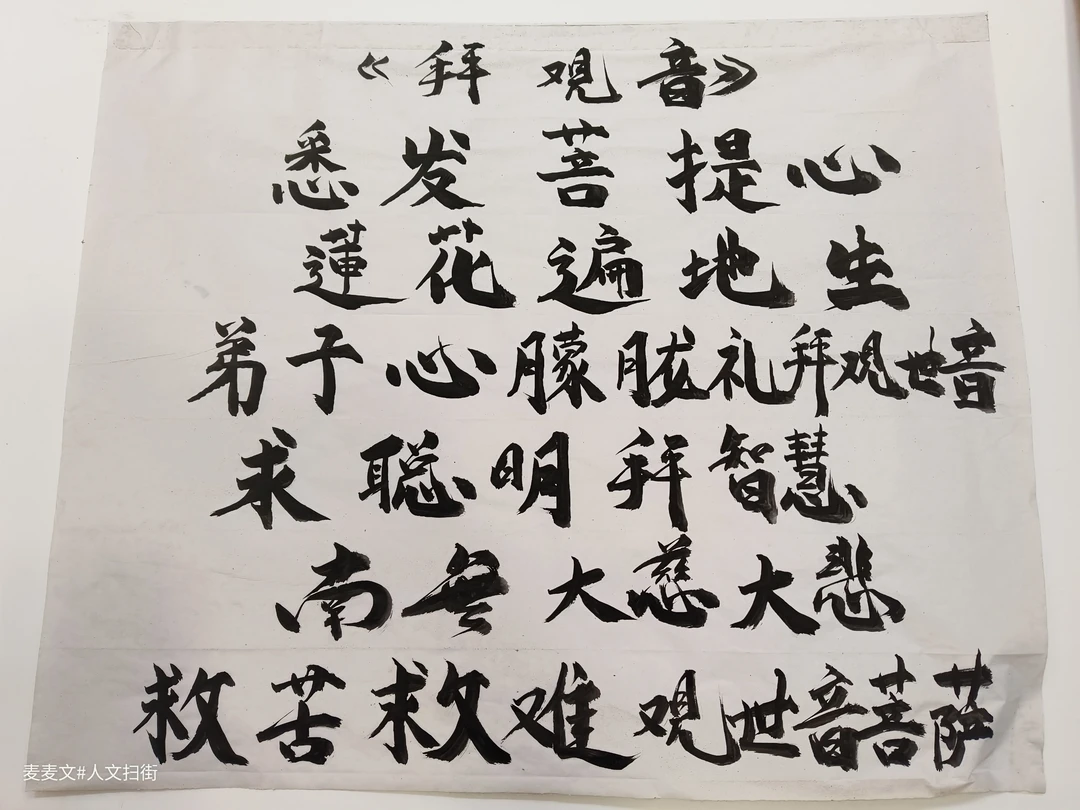 《拜观音》
悉发菩提心
蓮花遍地生
弟子心朦胧礼拜观世音
求聪明拜智慧
南无大慈大悲
救苦救难观世音菩萨
麦麦文#人文扫街